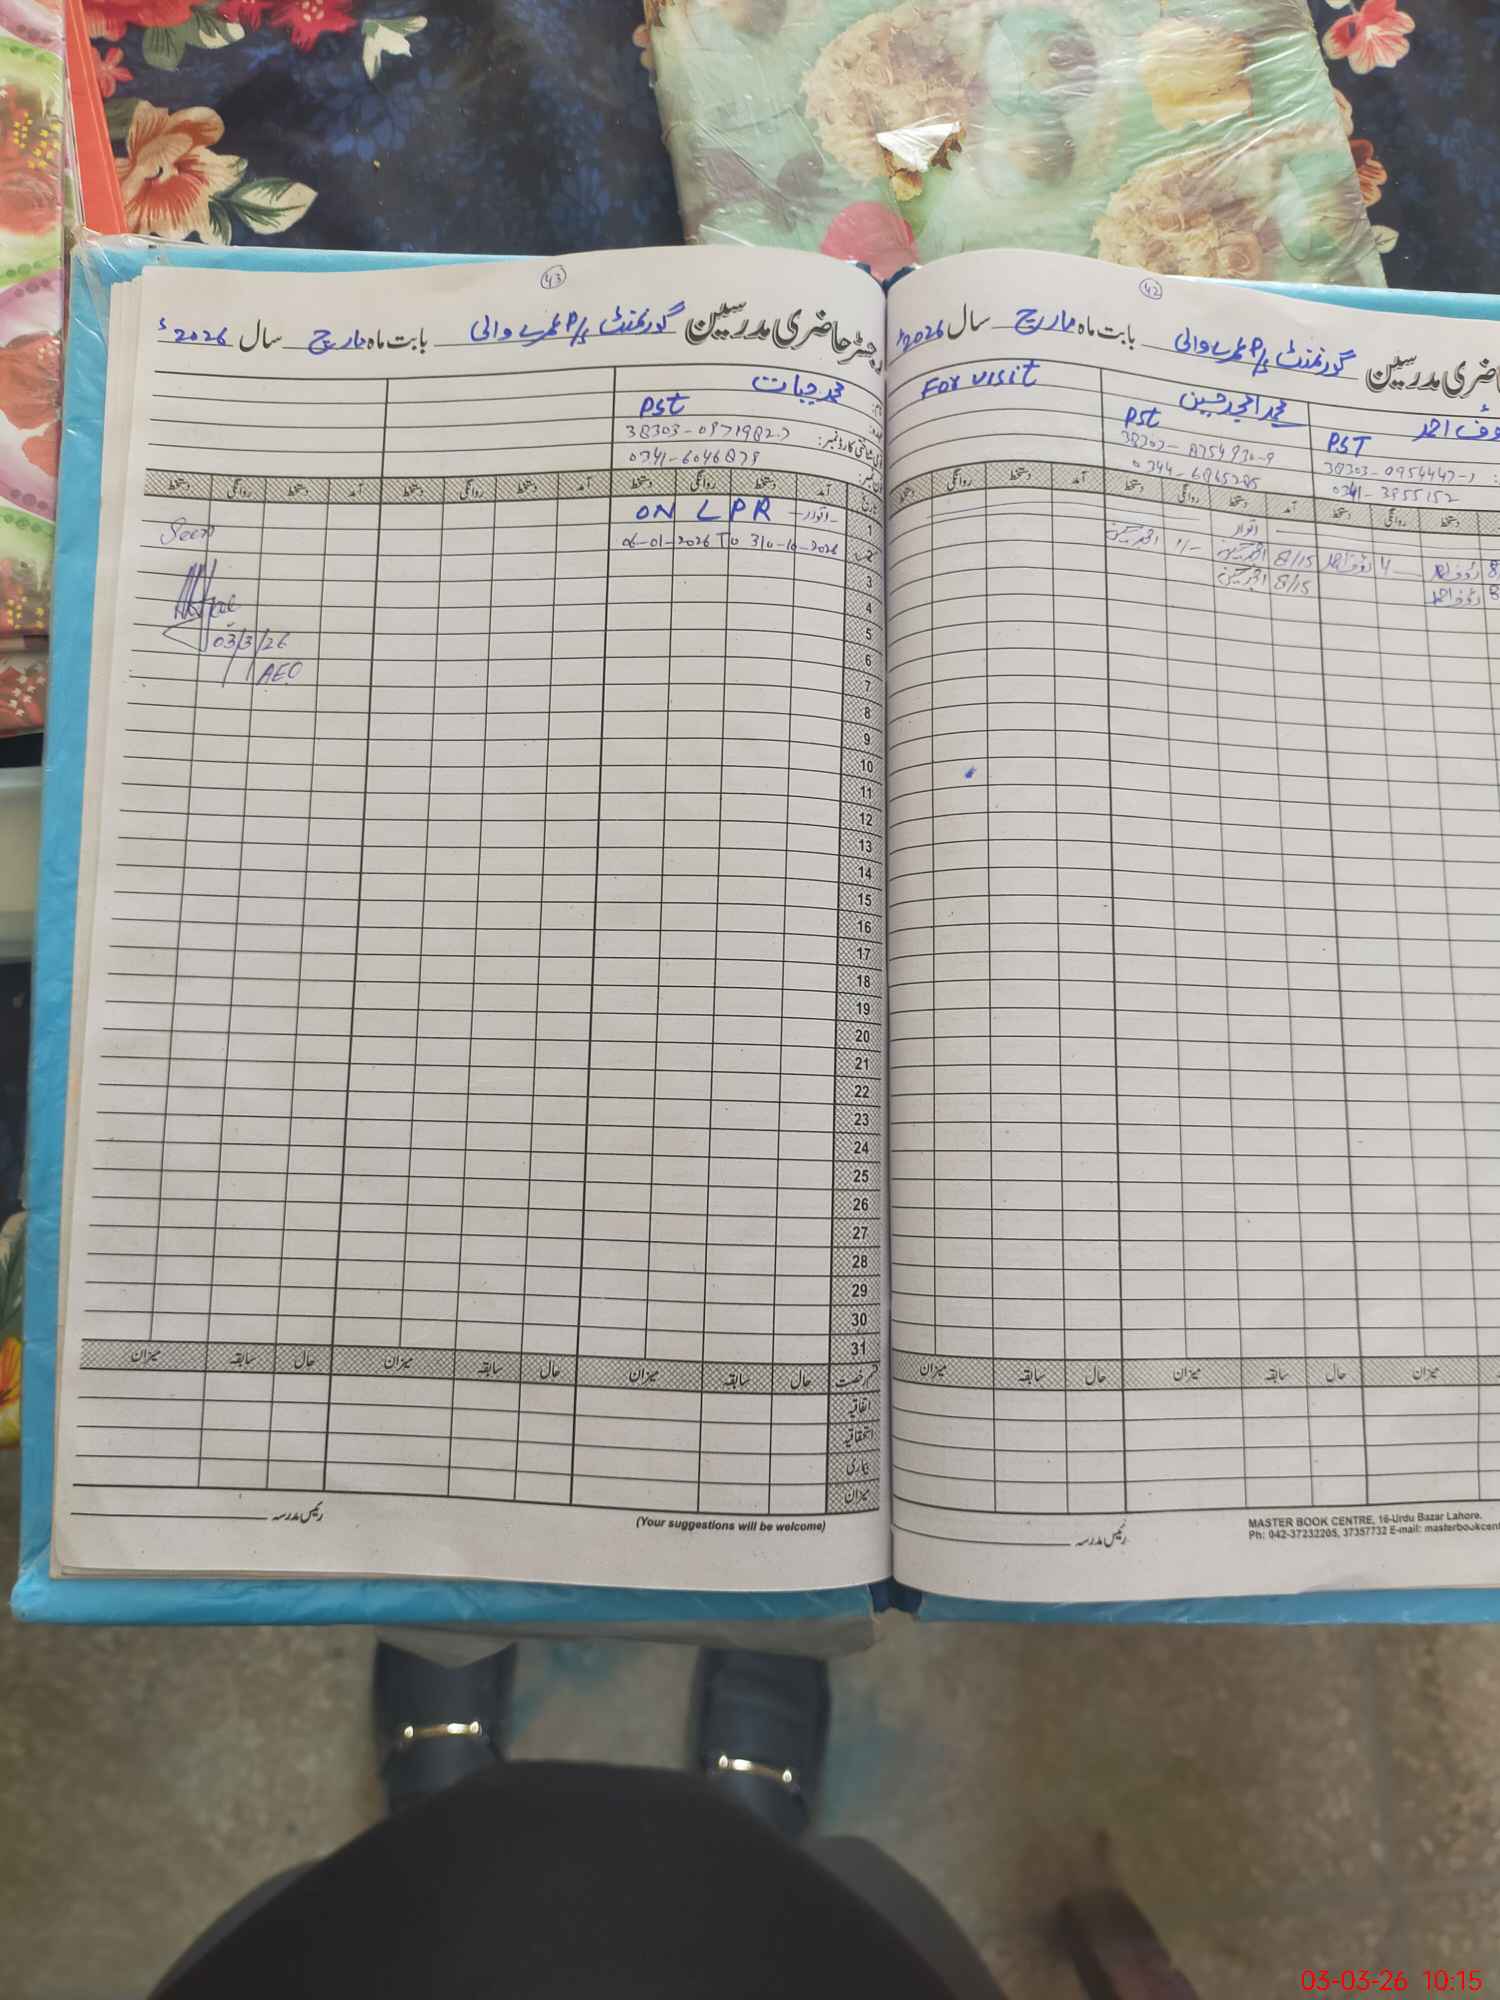 43
رجسٹر حاضری مدرسین گورنمنٹ P/S والی بابت ماہ مارچ سال 2026ء
محمد حیات
PST
38303-0971982-7
0341-6046879
تاریخ آمد دستخط روانگی دستخط آمد دستخط روانگی دستخط آمد دستخط روانگی دستخط
1 اتوار ON LPR
2 06-01-2026 TO 310-10-2026
Seen
03/3/26
AEO
3
4
5
6
7
8
9
10
11
12
13
14
15
16
17
18
19
20
21
22
23
24
25
26
27
28
29
30
31
قسم رخصت حال سابقہ میزان حال سابقہ میزان حال سابقہ میزان
اتفاقیہ
استحقاقیہ
بیماری
میزان
رئیس مدرسہ
(Your suggestions will be welcome)
42
حاضری مدرسین گورنمنٹ P/S والی بابت ماہ مارچ سال 2026ء
رؤف احمد
PST
38303-0954447-
0341-3955152
محمد امجد حسین
PST
0344-6865285
For visit
دستخط روانگی دستخط آمد دستخط روانگی دستخط آمد دستخط روانگی دستخط
اتوار
8 رؤف احمد رؤف احمد 8/15 امجد حسین امجد حسین
8 رؤف احمد 8/15 امجد حسین
میزان حال سابقہ میزان حال سابقہ میزان
رئیس مدرسہ
MASTER BOOK CENTRE, 16-Urdu Bazar Lahore.
Ph: 042-37232205, 37357732 E-mail: masterbookcent
03-03-26 10:15